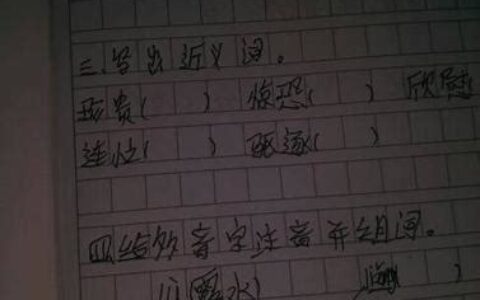 三.写出近义词。
珍贵( ) 惊恐( ) 欣慰
连忙( ) 驱逐( )
四给多音字注音并组词。